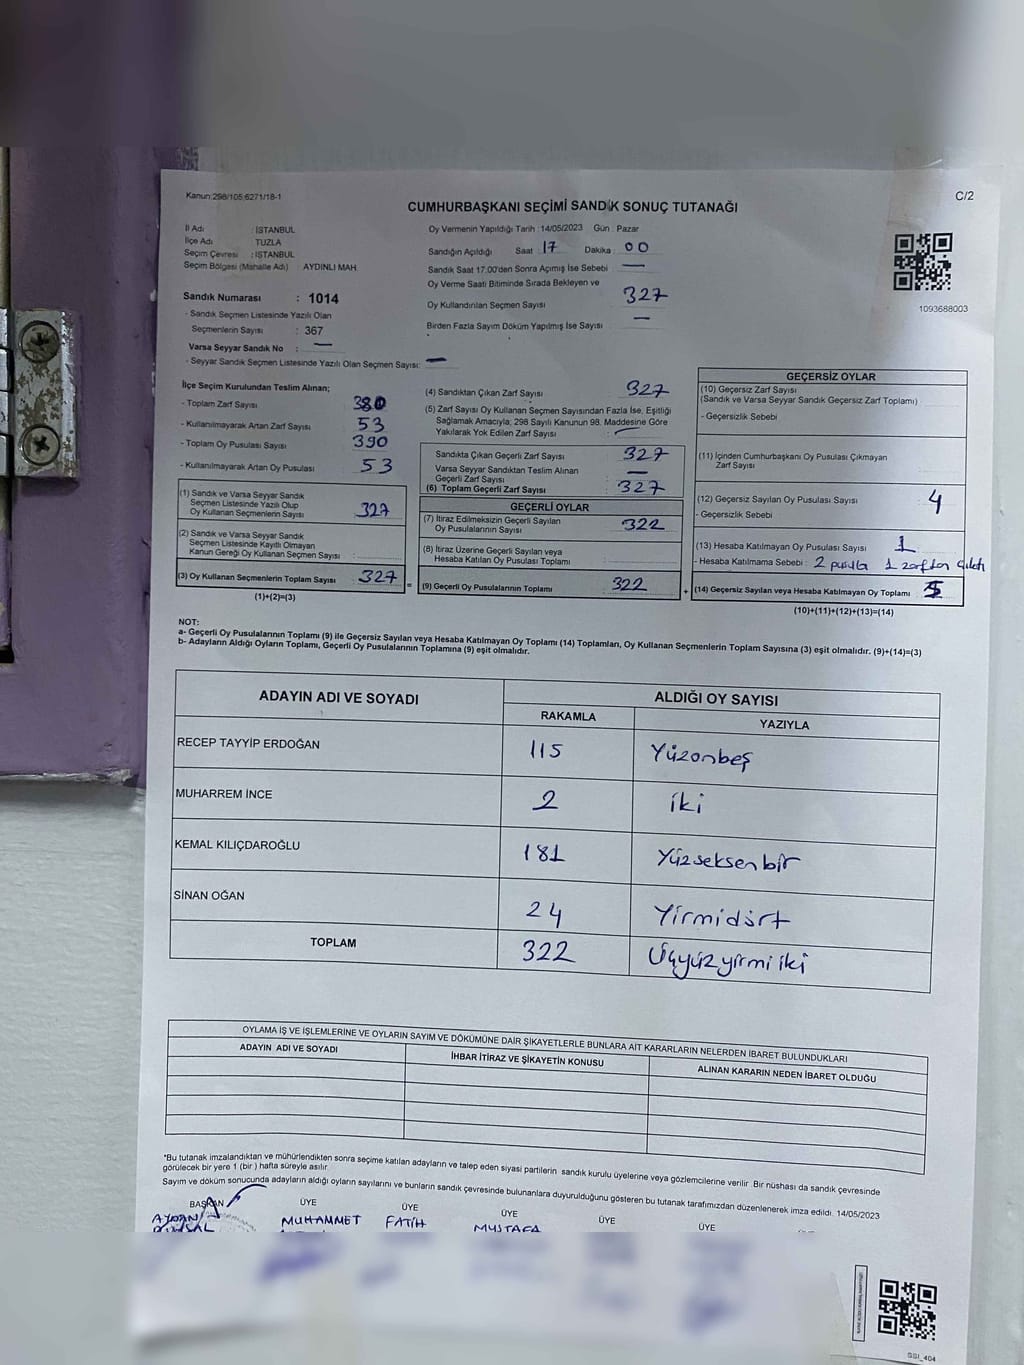 Kanun:298/105,6271/18-1
C/2
CUMHURBAŞKANI SEÇİMİ SANDIK SONUÇ TUTANAĞI
İl Adı : İSTANBUL
İlçe Adı : TUZLA
Seçim Çevresi : İSTANBUL
Seçim Bölgesi (Mahalle Adı) : AYDINLI MAH.
Sandık Numarası : 1014
- Sandık Seçmen Listesinde Yazılı Olan
Seçmenlerin Sayısı : 367
Varsa Seyyar Sandık No : —
- Seyyar Sandık Seçmen Listesinde Yazılı Olan Seçmen Sayısı: —
Oy Vermenin Yapıldığı Tarih :14/05/2023 Gün : Pazar
Sandığın Açıldığı Saat 17 Dakika 00
Sandık Saat 17.00'den Sonra Açımış İse Sebebi —
Oy Verme Saati Bitiminde Sırada Bekleyen ve
Oy Kullandırılan Seçmen Sayısı 327
Birden Fazla Sayım Döküm Yapılmış İse Sayısı —
1093688003
İlçe Seçim Kurulundan Teslim Alınan;
- Toplam Zarf Sayısı 380
- Kullanılmayarak Artan Zarf Sayısı 53
- Toplam Oy Pusulası Sayısı 390
- Kullanılmayarak Artan Oy Pusulası 53
(1) Sandık ve Varsa Seyyar Sandık
Seçmen Listesinde Yazılı Olup
Oy Kullanan Seçmenlerin Sayısı 327
(2) Sandık ve Varsa Seyyar Sandık
Seçmen Listesinde Kayıtlı Olmayan
Kanun Gereği Oy Kullanan Seçmen Sayısı
(3) Oy Kullanan Seçmenlerin Toplam Sayısı 327
(1)+(2)=(3)
(4) Sandıktan Çıkan Zarf Sayısı 327
(5) Zarf Sayısı Oy Kullanan Seçmen Sayısından Fazla İse, Eşitliği
Sağlamak Amacıyla; 298 Sayılı Kanunun 98. Maddesine Göre
Yakılarak Yok Edilen Zarf Sayısı —
Sandıkta Çıkan Geçerli Zarf Sayısı 327
Varsa Seyyar Sandıktan Teslim Alınan
Geçerli Zarf Sayısı —
(6) Toplam Geçerli Zarf Sayısı 327
GEÇERLİ OYLAR
(7) İtiraz Edilmeksizin Geçerli Sayılan
Oy Pusulalarının Sayısı 322
(8) İtiraz Üzerine Geçerli Sayılan veya
Hesaba Katılan Oy Pusulası Toplamı
= (9) Geçerli Oy Pusulalarının Toplamı 322
GEÇERSİZ OYLAR
(10) Geçersiz Zarf Sayısı
(Sandık ve Varsa Seyyar Sandık Geçersiz Zarf Toplamı)
- Geçersizlik Sebebi
(11) İçinden Cumhurbaşkanı Oy Pusulası Çıkmayan
Zarf Sayısı
(12) Geçersiz Sayılan Oy Pusulası Sayısı 4
- Geçersizlik Sebebi
(13) Hesaba Katılmayan Oy Pusulası Sayısı 1
- Hesaba Katılmama Sebebi : 2 pusula 1 zarftan çıktı
+ (14) Geçersiz Sayılan veya Hesaba Katılmayan Oy Toplamı 5
(10)+(11)+(12)+(13)=(14)
NOT:
a- Geçerli Oy Pusulalarının Toplamı (9) ile Geçersiz Sayılan veya Hesaba Katılmayan Oy Toplamı (14) Toplamları, Oy Kullanan Seçmenlerin Toplam Sayısına (3) eşit olmalıdır. (9)+(14)=(3)
b- Adayların Aldığı Oyların Toplamı, Geçerli Oy Pusulalarının Toplamına (9) eşit olmalıdır.
ADAYIN ADI VE SOYADI ALDIĞI OY SAYISI
RAKAMLA YAZIYLA
RECEP TAYYİP ERDOĞAN 115 Yüzonbeş
MUHARREM İNCE 2 iki
KEMAL KILIÇDAROĞLU 181 Yüzseksenbir
SİNAN OĞAN 24 Yirmidört
TOPLAM 322 Üçyüzyirmi iki
OYLAMA İŞ VE İŞLEMLERİNE VE OYLARIN SAYIM VE DÖKÜMÜNE DAİR ŞİKAYETLERLE BUNLARA AİT KARARLARIN NELERDEN İBARET BULUNDUKLARI
ADAYIN ADI VE SOYADI İHBAR İTİRAZ VE ŞİKAYETİN KONUSU ALINAN KARARIN NEDEN İBARET OLDUĞU
*Bu tutanak imzalandıktan ve mühürlendikten sonra seçime katılan adayların ve talep eden siyasi partilerin sandık kurulu üyelerine veya gözlemcilerine verilir .Bir nüshası da sandık çevresinde
görülecek bir yere 1 (bir ) hafta süreyle asılır.
Sayım ve döküm sonucunda adayların aldığı oyların sayılarını ve bunların sandık çevresinde bulunanlara duyurulduğunu gösteren bu tutanak tarafımızdan düzenlenerek imza edildi. 14/05/2023
BAŞKAN ÜYE ÜYE ÜYE ÜYE ÜYE
AYDAN MUHAMMET FATİH MUSTAFA